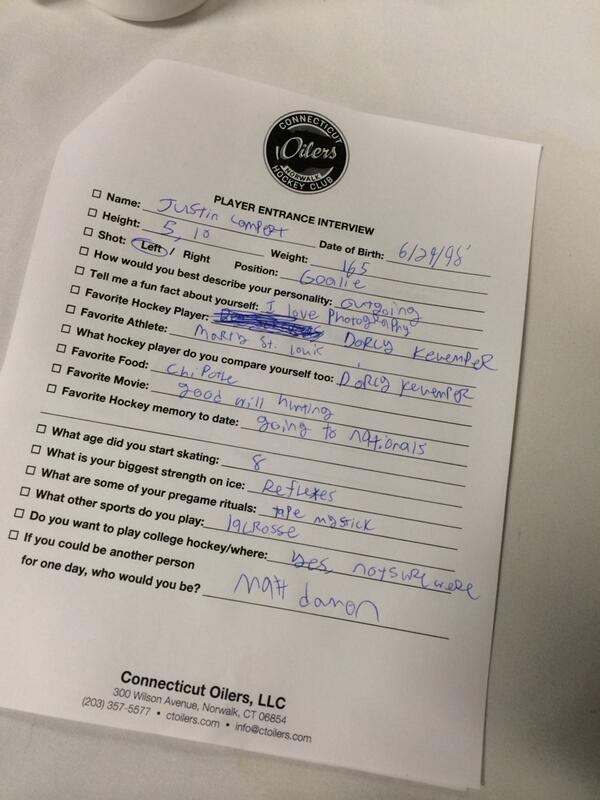 CONNECTICUT
Oilers
NORWALK
HOCKEY CLUB
PLAYER ENTRANCE INTERVIEW
Name: Justin Lompert Date of Birth: 6/29/98
Height: 5, 10 Weight: 165
Shot: Left / Right Position: Goalie
How would you best describe your personality: Outgoing
Tell me a fun fact about yourself: I love Photography
Favorite Hockey Player: Darcy Kevemper
Favorite Athlete: Marty St. Louis
What hockey player do you compare yourself too: Darcy Kevemper
Favorite Food: Chipotle
Favorite Movie: good will hunting
Favorite Hockey memory to date: going to nationals
What age did you start skating: 8
What is your biggest strength on ice: Reflexes
What are some of your pregame rituals: tape my stick
What other sports do you play: lacrosse
Do you want to play college hockey/where: yes, not sure were
If you could be another person
for one day, who would you be? Matt damon
Connecticut Oilers, LLC
300 Wilson Avenue, Norwalk, CT 06854
(203) 357-5577 • ctoilers.com • info@ctoilers.com